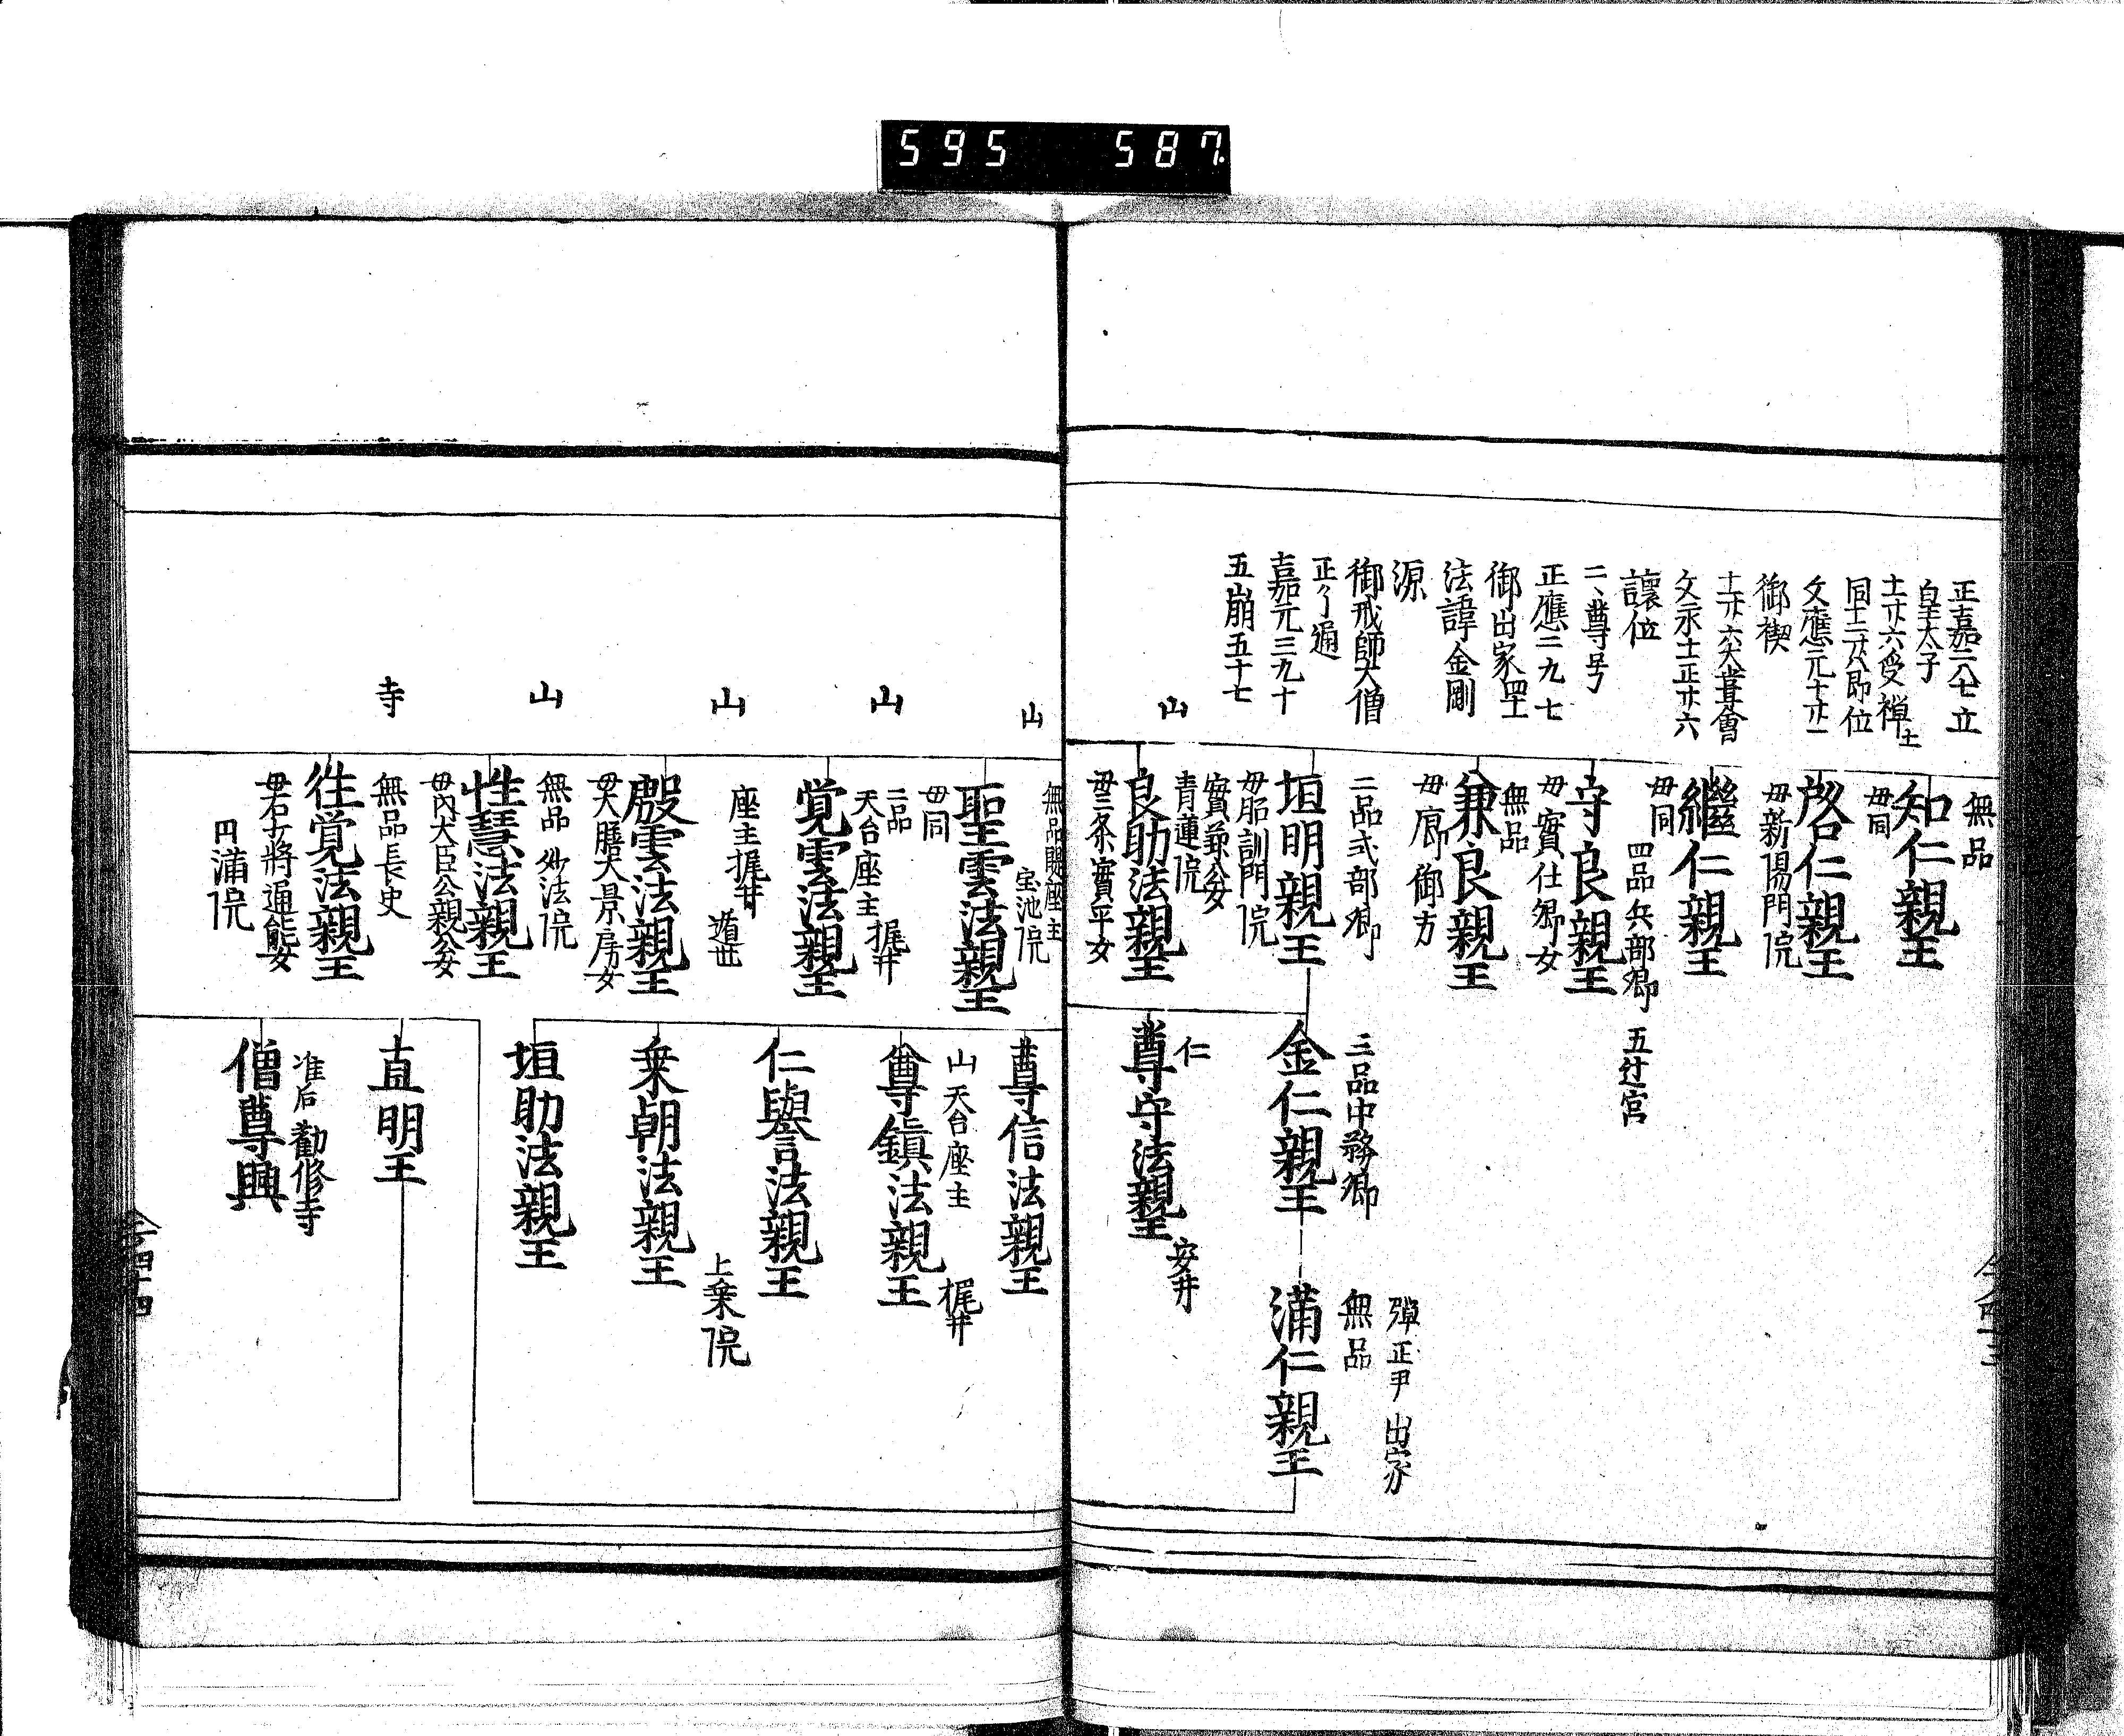 595 587
正嘉二八七立
皇太子
十一廿六受禅
同十二廿八即位
文應元十廿一
御禊
十一廿六大嘗會
文永十一正廿六
讓位
二、尊号
正應二九七
御出家四十一
法諱金剛
源
御戒師大僧
正了遍
嘉元三九十
五崩五十七
無品
知仁親王
母同
啓仁親王
母新陽門院
繼仁親王
母同
四品兵部卿 五辻宮
守良親王
母實仕卿女
無品
兼良親王
母廊御方
二品式部卿
垣明親王
母昭訓門院
實兼公女
三品中務卿
金仁親王
彈正尹 出家
無品
満仁親王
山
青蓮院
良助法親王
母三条實平女
仁
尊守法親王
安井
山
無品 座主
宝池院
聖雲法親王
母同
山
二品
天台座主 梶井
覚雲法親王
山
座主梶井 遁世
殿雲法親王
母大膳大景房女
山
無品 妙法院
性慧法親王
母内大臣公親公女
寺
無品長史
往覚法親王
母右少將通能女
円満院
尊信法親王
山 天台座主 梶井
尊鎮法親王
仁譽法親王
上乗院
乗朝法親王
垣助法親王
直明王
准后 勸修寺
僧尊興